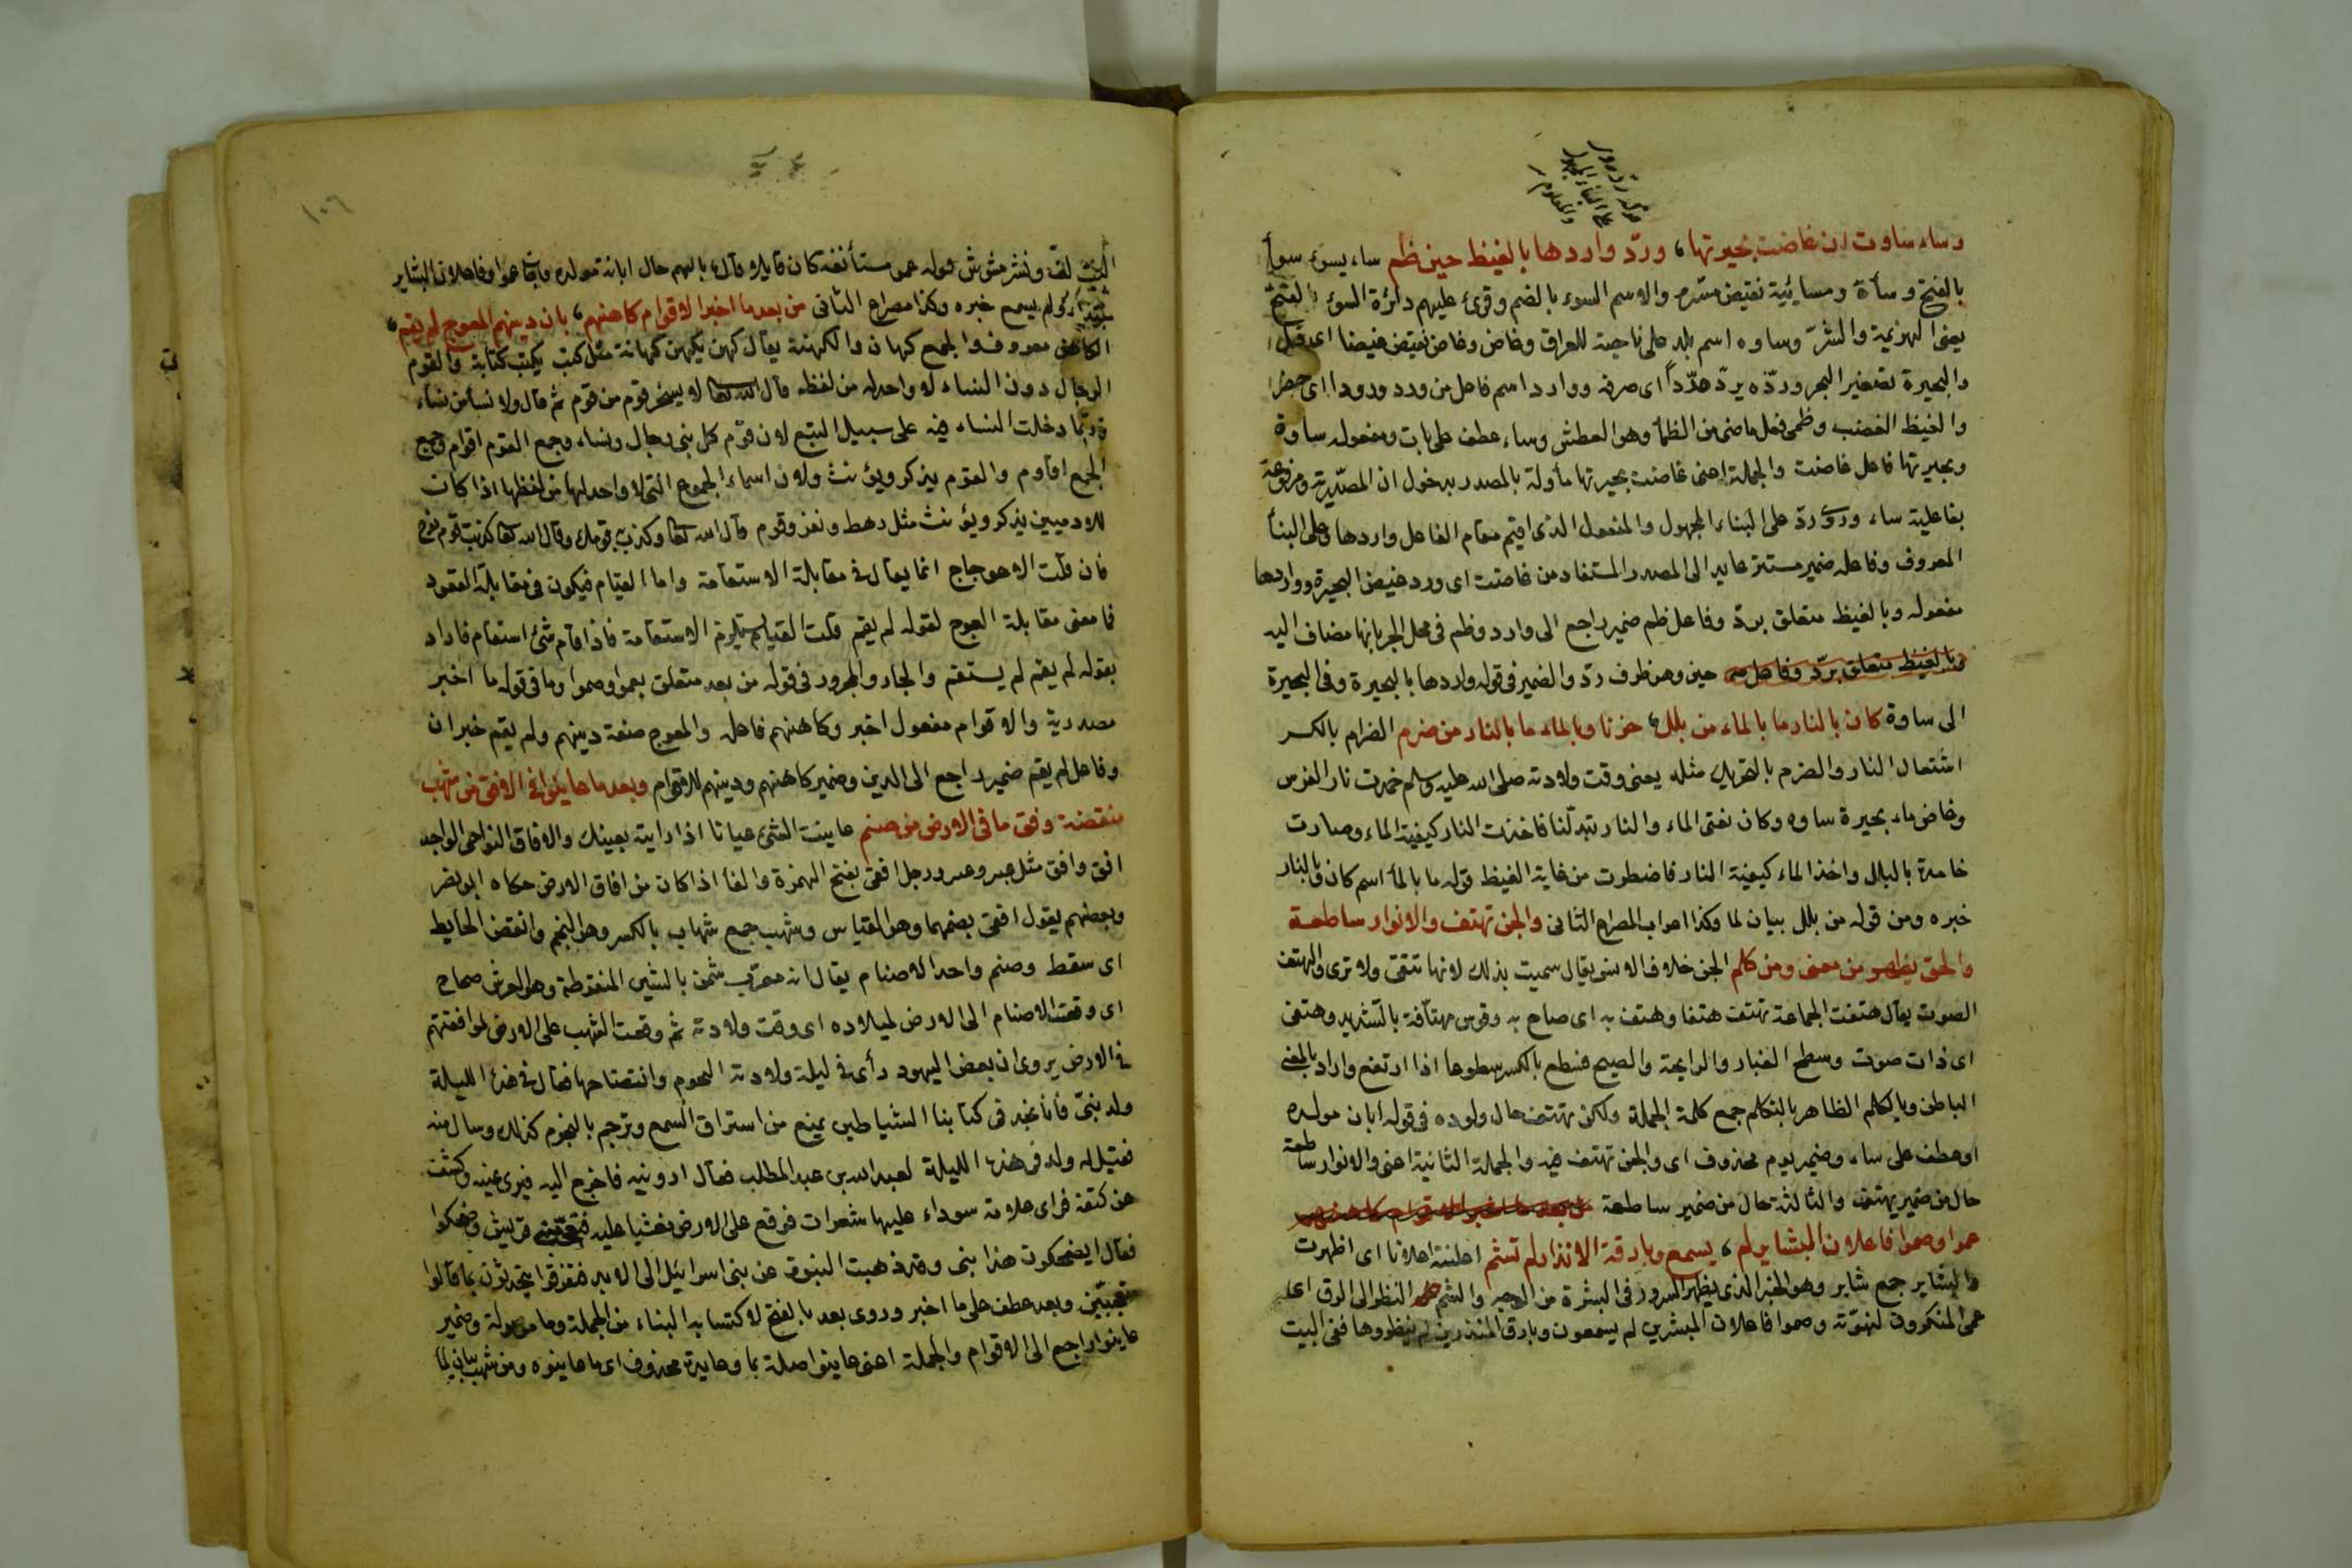 وساء ساوت ان غاضت بحيرتها، وردّ واردها بالغيظ حين ظم ساء يسوء سوأ
بالفتح وسأة ومسائية نقيض مسّره والاسم السوء بالضم وقرئ عليهم دائرة السوء بالفتح
يعنى الهزيمة والشرّ وساوه اسم بلد على ناحية للعراق وغاض وغاض نقيض فيضا اى قل
والبحيرة تصغير البحر وردّه يردّ هدّداً اى صرفه ووارد اسم فاعل من ورد ورودا اى حضر
والغيظ الغضب وظمى فعل ماضى من الظمأ وهو العطش وساء عطف على بات ومفعوله ساوة
وبحيرتها فاعل غاضت والجملة اعنى غاضت بحيرتها مأولة بالمصدر بدخول ان المصدرية ومرفوعة
بفاعلية ساء وروى ردّ على البناء المجهول والمفعول الذى اقيم مقام الفاعل واردها وعلى البنأ
المعروف وفاعله ضمير مستتر عايد الى المصدر المستفاد من غاضت اى ورد غيض البحيرة وواردها
مفعوله وبالغيظ متعلق بردّ وفاعل ظم ضمير راجع الى وارد وظم فى محل الجر بانها مضاف اليه
وبالغيظ متعلق بردّ وفاعل حين وهو ظرف ردّ والضمير فى قوله واردها بالبحيرة وفى البحيرة
الى ساوة كان بالنار ما بالماء من بلل، حزنا وبالماء ما بالنار من ضرم الضرام بالكسر
اشتعال النار والضرم بالتحريك مثله يعنى وقت ولادته صلى الله عليه وسلم خمدت نار الفرس
وغاض ماء بحيرة ساوه وكان نعتى الماء والنار تبدّلنا فاخذت النار كيفية الماء وصارت
خامدة بالبلل واخذ الماء كيفية النار فاضطرت من غاية الغيظ قوله ما بالمأ اسم كان وبالنار
خبره ومن قوله من بلل بيان لما وكذا اعراب المصراع الثانى والجن تهتف والانوار ساطعة
والحق يظهر من معنى ومن كلم الجن خلاف الانس يقال سميت بذلك لانها تتقى ولا ترى والهتف
الصوت يقال هتفت الجماعة تهتف هتفا وهتف به اى صاح به وقوس هتّافة بالتشديد وهتفى
اى ذات صوت وسطع الغبار والرايحة والصبح فسطع بالكسر سطوعا اذا ارتفع واراد بالمعنى
الباطن وبالكلم الظاهر بالتكلم جمع كلمة الجملة ولكن تهتف حال ولوده فى قوله ابان مولده
او عطف على ساء وضمير يوم محذوف اى والجن تهتف فيه والجملة الثانية اعنى والانوار ساطعة
حال من ضمير يهتف والثالثة حال من ضمير ساطعة من بعد ما اخبر الاقوام كاهنهم
عموا وصموا فاعلان البشاير لم، يسمع وبارقة الانذار لم تشم اعلنته اعلانا اى اظهرت
والبشاير جمع شاير وهو الخبر الذى يظهر السرور فى البشرة من الوجه والشم النظر الى البرق اى
عمى المنكرون لنبوّته وصموا فاعلان المبشرين لم يسمعون وبارق المنذرين لم ينظروها ففى البيت
١٠٦
لف ونشر مشوش قوله عموا مستأنفه كان قايلا قال ما بالهم حال ابانة مولده فاجاب عموا وفاعلان البشاير
مبتدأ ولم يسمع خبره وكذا مصراع الثانى من بعد ما اخبر الاقوام كاهنهم، بان دينهم المعوج لم يقم،
الكاهن معروف والجمع كهان والكهنة يقال كهن يكهن كهانة مثل كتب يكتب كتابة والقوم
الرجال دون النساء لا واحد له من لفظه قال الله تعالى لا يسخر قوم من قوم ثم قال ولا نسأ من نساء
وربّما دخلت النساء فيه على سبيل التبع لان قوم كل نبى رجال ونساء وجمع القوم اقوام وجمع
الجمع اقاوم والقوم يذكر ويؤنث ولان اسماء الجموع التى لا واحد لها من لفظها اذا كانت
للادميين يذكر ويؤنث مثل رهط ونفر وقوم قال الله تعالى وكذب به قومك وقال الله تعالى كذبت قوم نوح
فان قلت الاعوجاج انما يقال فى مقابلة الاستقامة واما القيام فيكون فى مقابلة القعود
فما معنى مقابلة العوج لقوله لم يقم قلت القيام يستلزم الاستقامة فاذا قام شئ استقام فاراد
بقوله لم يقم لم يستقم والجار والمجرور فى قوله من بعد متعلق بعموا وصموا وما فى قوله ما اخبر
مصدرية والاقوام مفعول اخبر وكاهنهم فاعله والمعوج صفة دينهم ولم يقم خبر ان
وفاعل لم يقم ضمير راجع الى الدين وضمير كاهنهم ودينهم للاقوام وبعد ما عاينوا فى الافق من شهب
منقضة وفق ما فى الارض من صنم عاينت الشئ عيانا اذا رايته بعينك والافاق النواحى الواحد
افق وافق مثل عسر وعسر ورجل افقى بفتح الهمزة والفأ اذا كان من افاق الارض حكاه ابو نصر
وبعضهم يقول افقى بضمهما وهو القياس وشهب جمع شهاب بالكسر وهو النجم وانقض الحايط
اى سقط وصنم واحد الاصنام يقال انه معرّب شمن بالشين المنقوطة وهو الوثن صحاح
اى وقعت الاصنام الى الارض لميلاده اى وقت ولادته ثم وقعت الشهب على الارض لموافقتهم
فى الارض يروى ان بعض اليهود رأى فى ليلة ولادته النجوم وانقضاضها فقال فى هذه الليلة
ولد نبىّ فانا نجد فى كتابنا الشياطين يمنع من استراق السمع وترجم بالنجوم كذلك وسال منه
فقيل له ولد فى هذه الليلة لعبد الله بن عبد المطلب فقال ادونيه فاخرج اليه فيرى عينه وكشفت
عن كتفه فراى علامة سوداء عليها شعرات فوقع على الارض مغشيا عليه فتعجّبت قريش وضحكوا
فقال ايضحكون هذا نبى وقد ذهبت النبوة عن بنى اسرائيل الى الابد فتفرقوا يتحدثون بما قالوا
متعجّبين وبعد عطف على ما اخبر وروى بعد بالفتح لاكتسابه البناء من الجملة وما موصولة وضمير
عاينوا راجع الى الاقوام والجملة اعنى عاينوا صلة بما وعايده محذوف اى ما عاينوه ومن شهب بيان لما